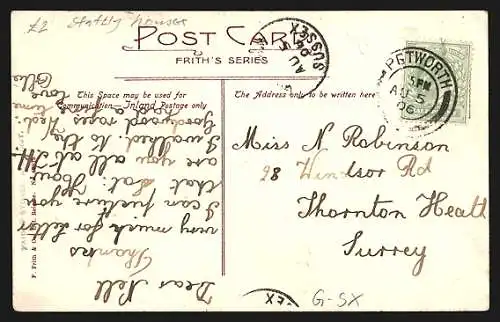 £2 Stately houses
POST CARD
FRITH'S SERIES
This Space may be used for
Communication—Inland Postage only
The Address only to be written here
SUSSEX
AU 5
06
PETWORTH
5 PM
AU 5
06
Miss N Robinson
28 Windsor Rd
Thornton Heath
Surrey
Dear Nell
Thanks
very much for letter
I can picture you
that Sat. How
are you all at T.H.
I walked to the
Goodwood races Fri.
had a good time
love
EX
G-SX
F. Frith & Co. Ltd. Reigate.